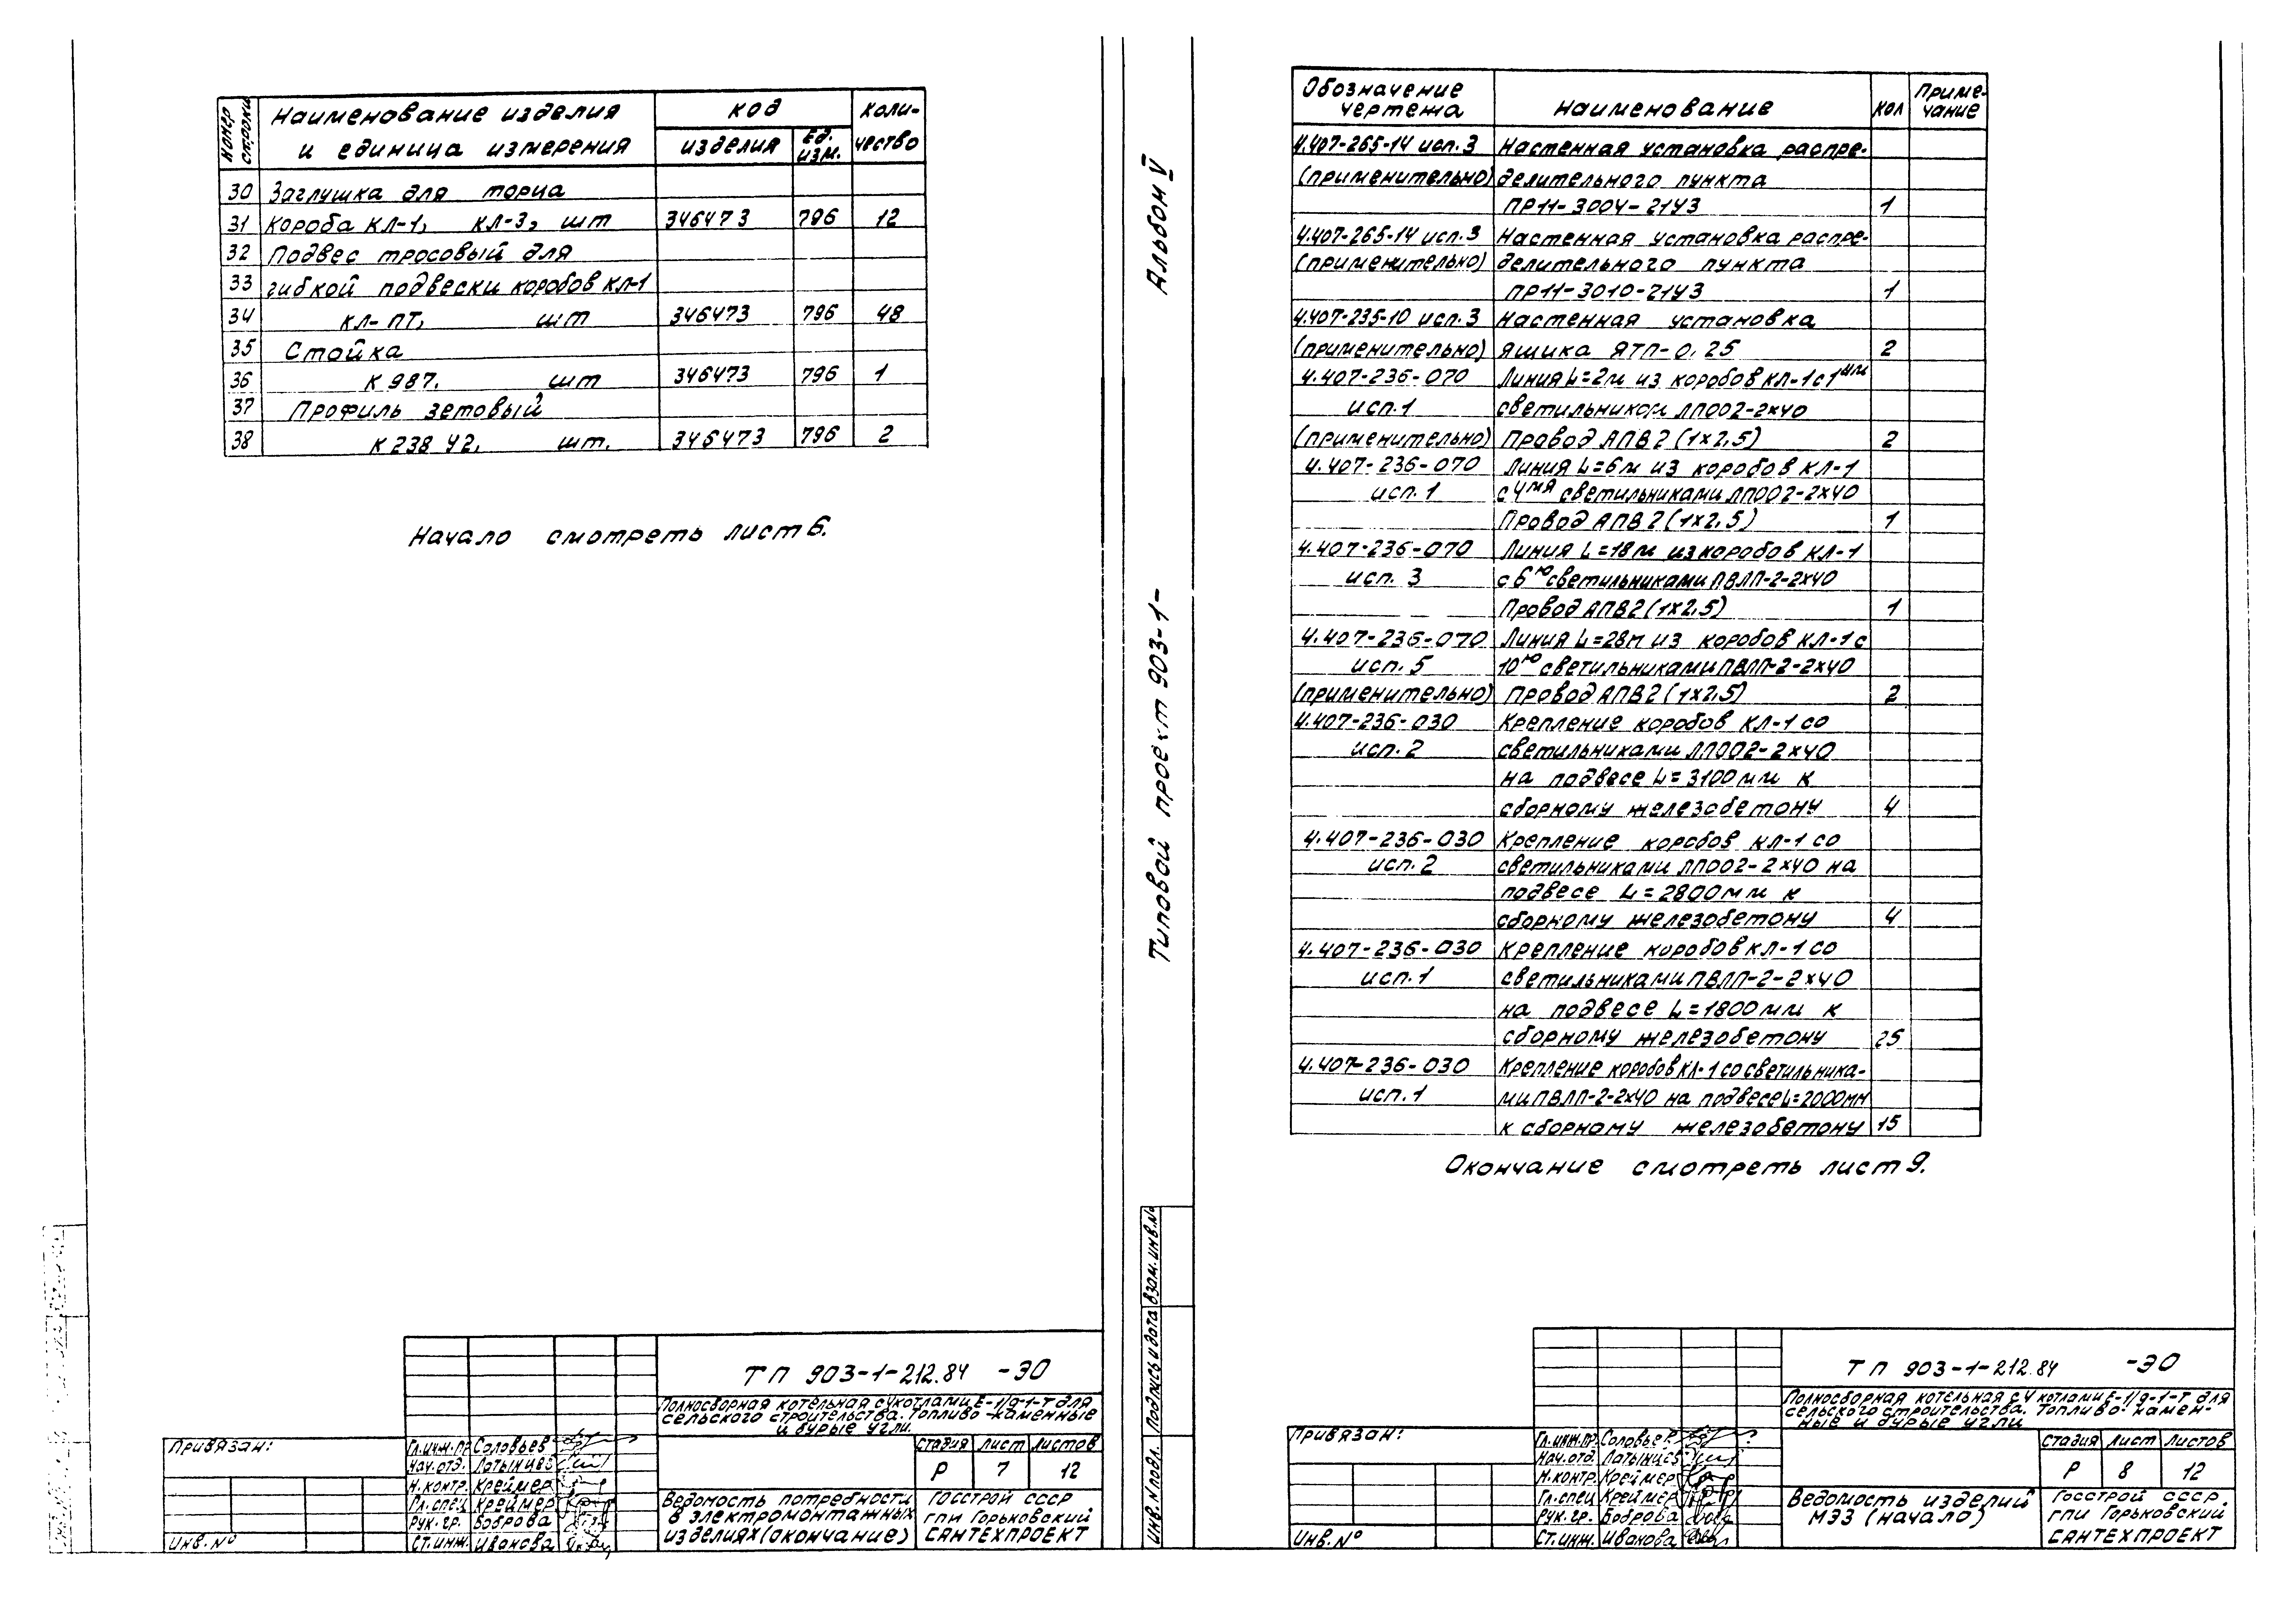 Номер строки
Наименование изделия
и единица измерения
код
изделия
Ед. изм.
Коли-
чество
30 Заглушка для торца
31 короба КЛ-1, КЛ-3, шт 346473 796 12
32 Подвес тросовый для
33 гибкой подвески коробов КЛ-1
34 КЛ-ПТ, шт 346473 796 48
35 Стойка
36 К 987, шт 346473 796 1
37 Профиль зетовый
38 К 238 У2, шт. 346473 796 2
Начало смотреть лист 6.
Привязан:
Инв. №
Гл.инж.пр. Соловьев
Нач.отд. Латышев
Н.контр. Креймер
Гл.спец Креймер
Рук.гр. Боброва
Ст.инж. Иванова
ТП 903-1-212.84 -ЭО
Полносборная котельная с 4 котлами Е-1/9-1-Т для
сельского строительства. Топливо-каменные
и бурые угли.
Стадия Лист Листов
Р 7 12
Ведомость потребности
в электромонтажных
изделиях (окончание)
Госстрой СССР
ГПИ Горьковский
САНТЕХПРОЕКТ
Альбом V
Типовой проект 903-1-
Инв.№ подл. Подпись и дата Взам.инв.№
Обозначение
чертежа
Наименование
Кол
Приме-
чание
4.407-265-14 исп.3 Настенная установка распре-
(применительно) делительного пункта
ПР11-3004-21У3 1
4.407-265-14 исп.3 Настенная установка распре-
(применительно) делительного пункта
ПР11-3010-21У3 1
4.407-235-10 исп.3 Настенная установка
(применительно) ящика ЯТП-0,25 2
4.407-236-070 Линия L=2м из коробов КЛ-1 с 1им
исп.1 светильником ЛПО02-2х40
(применительно) Провод АПВ2(1х2,5) 2
4.407-236-070 Линия L=6м из коробов КЛ-1
исп.1 с 4мя светильниками ЛПО02-2х40
Провод АПВ2(1х2,5) 1
4.407-236-070 Линия L=18м из коробов КЛ-1
исп. 3 с 6ю светильниками ПВЛП-2-2х40
Провод АПВ2(1х2,5) 1
4.407-236-070 Линия L=28м из коробов КЛ-1 с
исп. 5 10ю светильниками ПВЛП-2-2х40
(применительно) Провод АПВ2(1х2,5) 2
4.407-236-030 Крепление коробов КЛ-1 со
исп. 2 светильниками ЛПО02-2х40
на подвесе L=3100мм к
сборному железобетону 4
4.407-236-030 Крепление коробов КЛ-1 со
исп. 2 светильниками ЛПО02-2х40 на
подвесе L=2800мм к
сборному железобетону 4
4.407-236-030 Крепление коробов КЛ-1 со
исп.1 светильниками ПВЛП-2-2х40
на подвесе L=1800мм к
сборному железобетону 25
4.407-236-030 Крепление коробов КЛ-1 со светильника-
исп.1 ми ПВЛП-2-2х40 на подвесе L=2000мм
к сборному железобетону 15
Окончание смотреть лист 9.
Привязан:
Инв. №
Гл.инж.пр. Соловьев
Нач.отд. Латышев
Н.контр. Креймер
Гл.спец Креймер
Рук.гр. Боброва
Ст.инж. Иванова
ТП 903-1-212.84 -ЭО
Полносборная котельная с 4 котлами Е-1/9-1-Т для
сельского строительства. Топливо-камен-
ные и бурые угли
Стадия Лист Листов
Р 8 12
Ведомость изделий
МЭЗ (начало)
Госстрой СССР
ГПИ Горьковский
САНТЕХПРОЕКТ